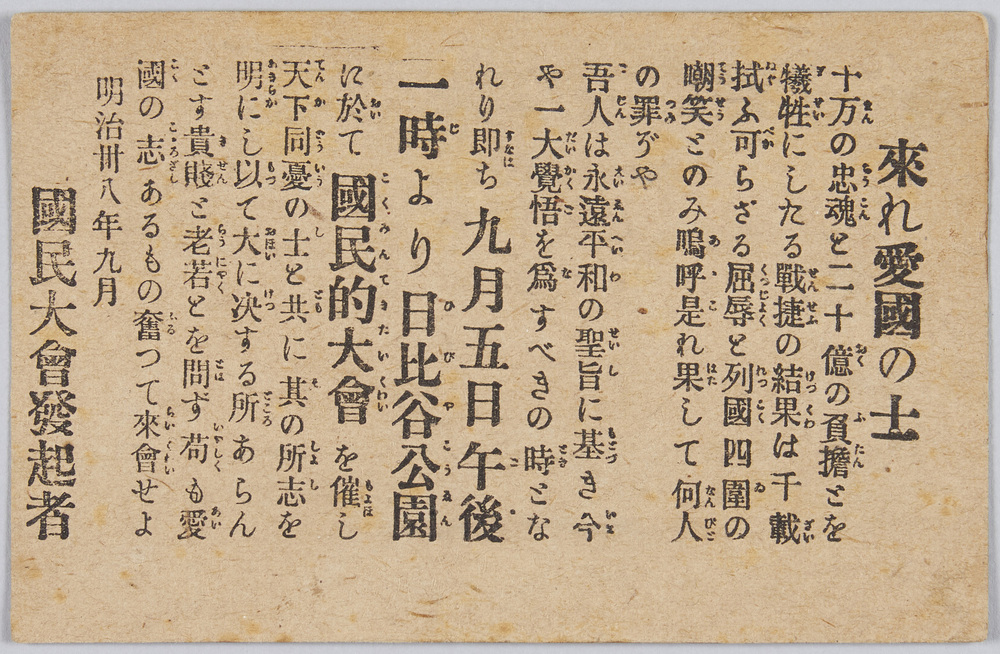 來れ愛國の士
十万の忠魂と二十億の負擔とを
犧牲にしたる戰捷の結果は千載
拭ふ可らざる屈辱と列國四圍の
嘲笑とのみ嗚呼是れ果して何人
の罪ぞや
吾人は永遠平和の聖旨に基き今
や一大覺悟を爲すべきの時とな
れり即ち九月五日午後
一時より日比谷公園
に於て國民的大會を催し
天下同憂の士と共に其の所志を
明にし以て大に决する所あらん
とす貴賤と老若とを問はず苟も愛
國の志あるもの奮つて來會せよ
明治卅八年九月
國民大會發起者